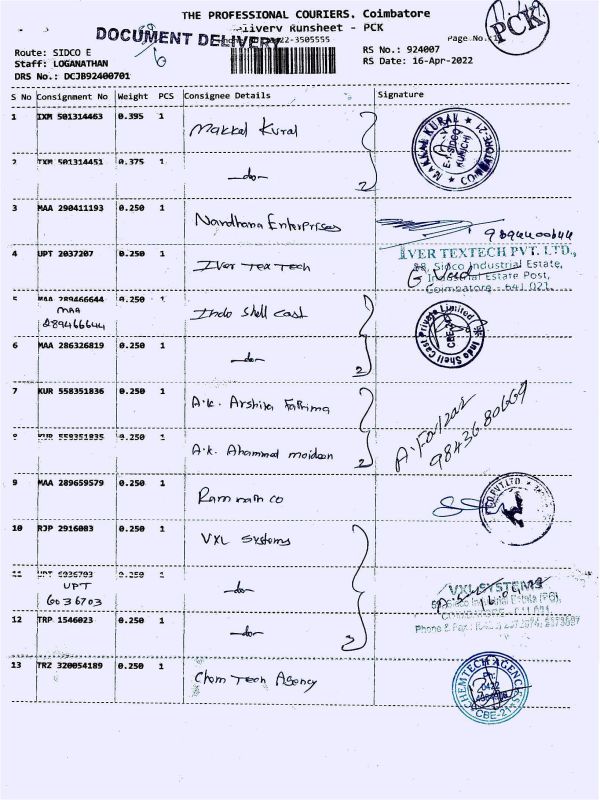 THE PROFESSIONAL COURIERS. Coimbatore
PCK
DOCUMENT DELIVERY
Runsheet - PCK
Page No.:1
Route: SIDCO E
RS No.: 924007
Staff: LOGANATHAN
RS Date: 16-Apr-2022
DRS No.: DCJB92400701
S No Consignment No Weight PCS Consignee Details Signature
1 IXM 501314463 0.395 1 Makkal Kural
MAKKAL KURAL
COIMBATORE-21
2 IXM 501314451 0.375 1 -do- 2
3 MAA 290411193 0.250 1 Nandhana Enterprises
4 UPT 2037207 0.250 1 Iver Tex Tech
IVER TEXTECH PVT. LTD.,
Sidco Industrial Estate,
Industrial Estate Post,
Coimbatore - 641 021.
5 MAA 289466644 0.250 1 Indo Shell Cast
MAA
289466644
Indo Shell Cast Private Limited
CBE-21
6 MAA 286326819 0.250 1 -do- 2
7 KUR 558351836 0.250 1 A.K. Arshika Fathima
9843680669
8 KUR 558351835 0.250 1 A.K. Ahammed moideen 2
9 MAA 289659579 0.250 1 Ram nath co
CO.PVT.LTD
10 RJP 2916083 0.250 1 VXL Systems
11 UPT 6036703 0.250 1 -do-
UPT
6036703
VXL SYSTEMS
12 TRP 1546023 0.250 1 -do- 3
13 TRZ 320054189 0.250 1 Chem Tech Agency
CHEMTECH AGENCY
Ph:
0422
CBE-21